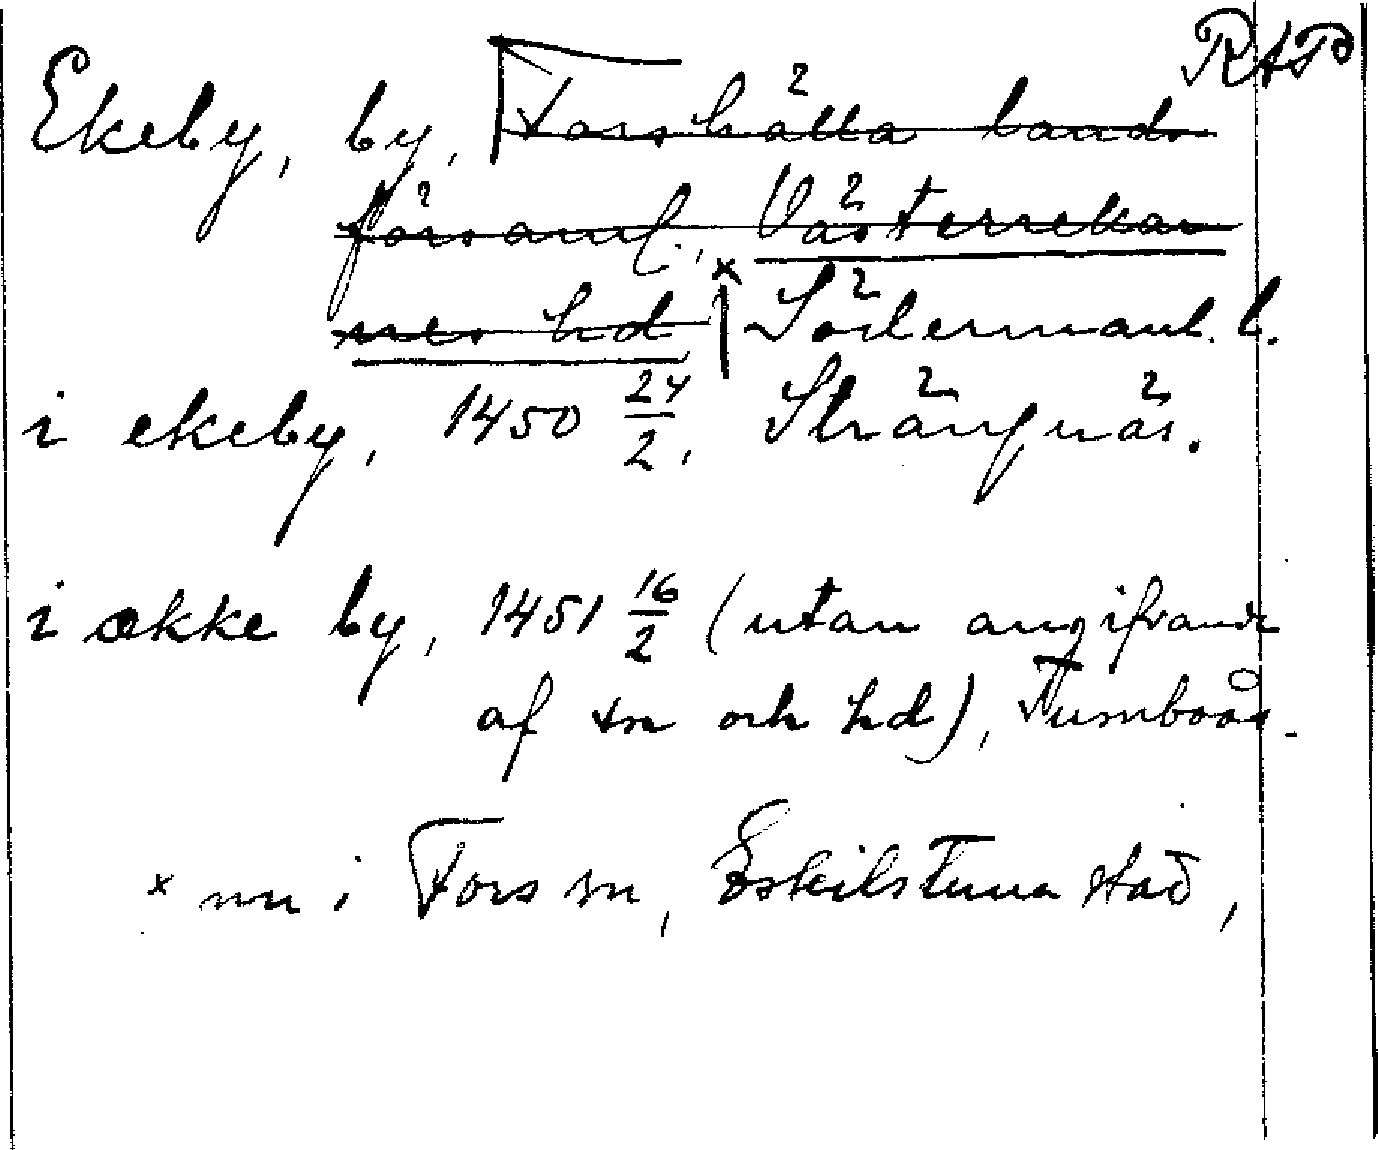 RAP
Ekeby, by, Torshälla lands
församl., Västerrekar
nes hd × Södermanl. l.
i ekeby, 1450 24/2, Strängnäs.
i ække by, 1451 16/2 (utan angifvande
af sn och hd), Tumboås.
× nu i Fors sn, Eskilstuna stad,